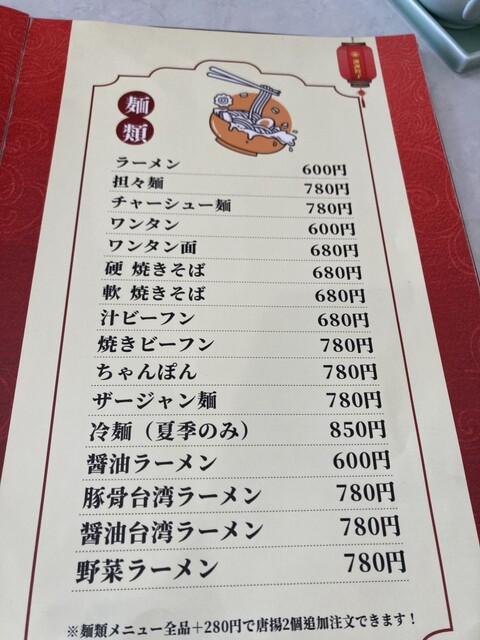 麺類
ラーメン 600円
担々麺 780円
チャーシュー麺 780円
ワンタン 600円
ワンタン面 680円
硬 焼きそば 680円
軟 焼きそば 680円
汁ビーフン 680円
焼きビーフン 780円
ちゃんぽん 780円
ザージャン麺 780円
冷麺（夏季のみ） 850円
醤油ラーメン 600円
豚骨台湾ラーメン 780円
醤油台湾ラーメン 780円
野菜ラーメン 780円
※麺類メニュー全品＋280円で唐揚2個追加注文できます！